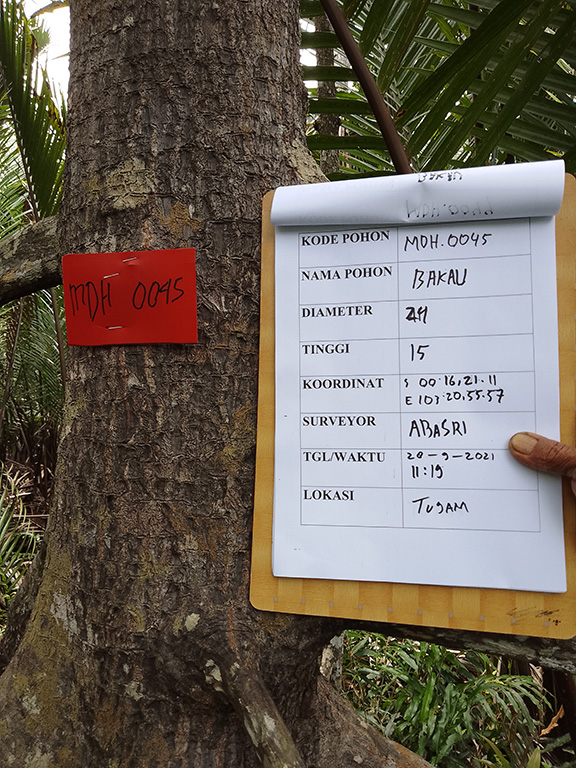 MDH 0045
BAKAU
KODE POHON MDH.0045
NAMA POHON BAKAU
DIAMETER
TINGGI 15
KOORDINAT S 00.16,21.11
E 103.20,55.57
SURVEYOR ABASRI
TGL/WAKTU 20-9-2021
11:19
LOKASI TUJAM